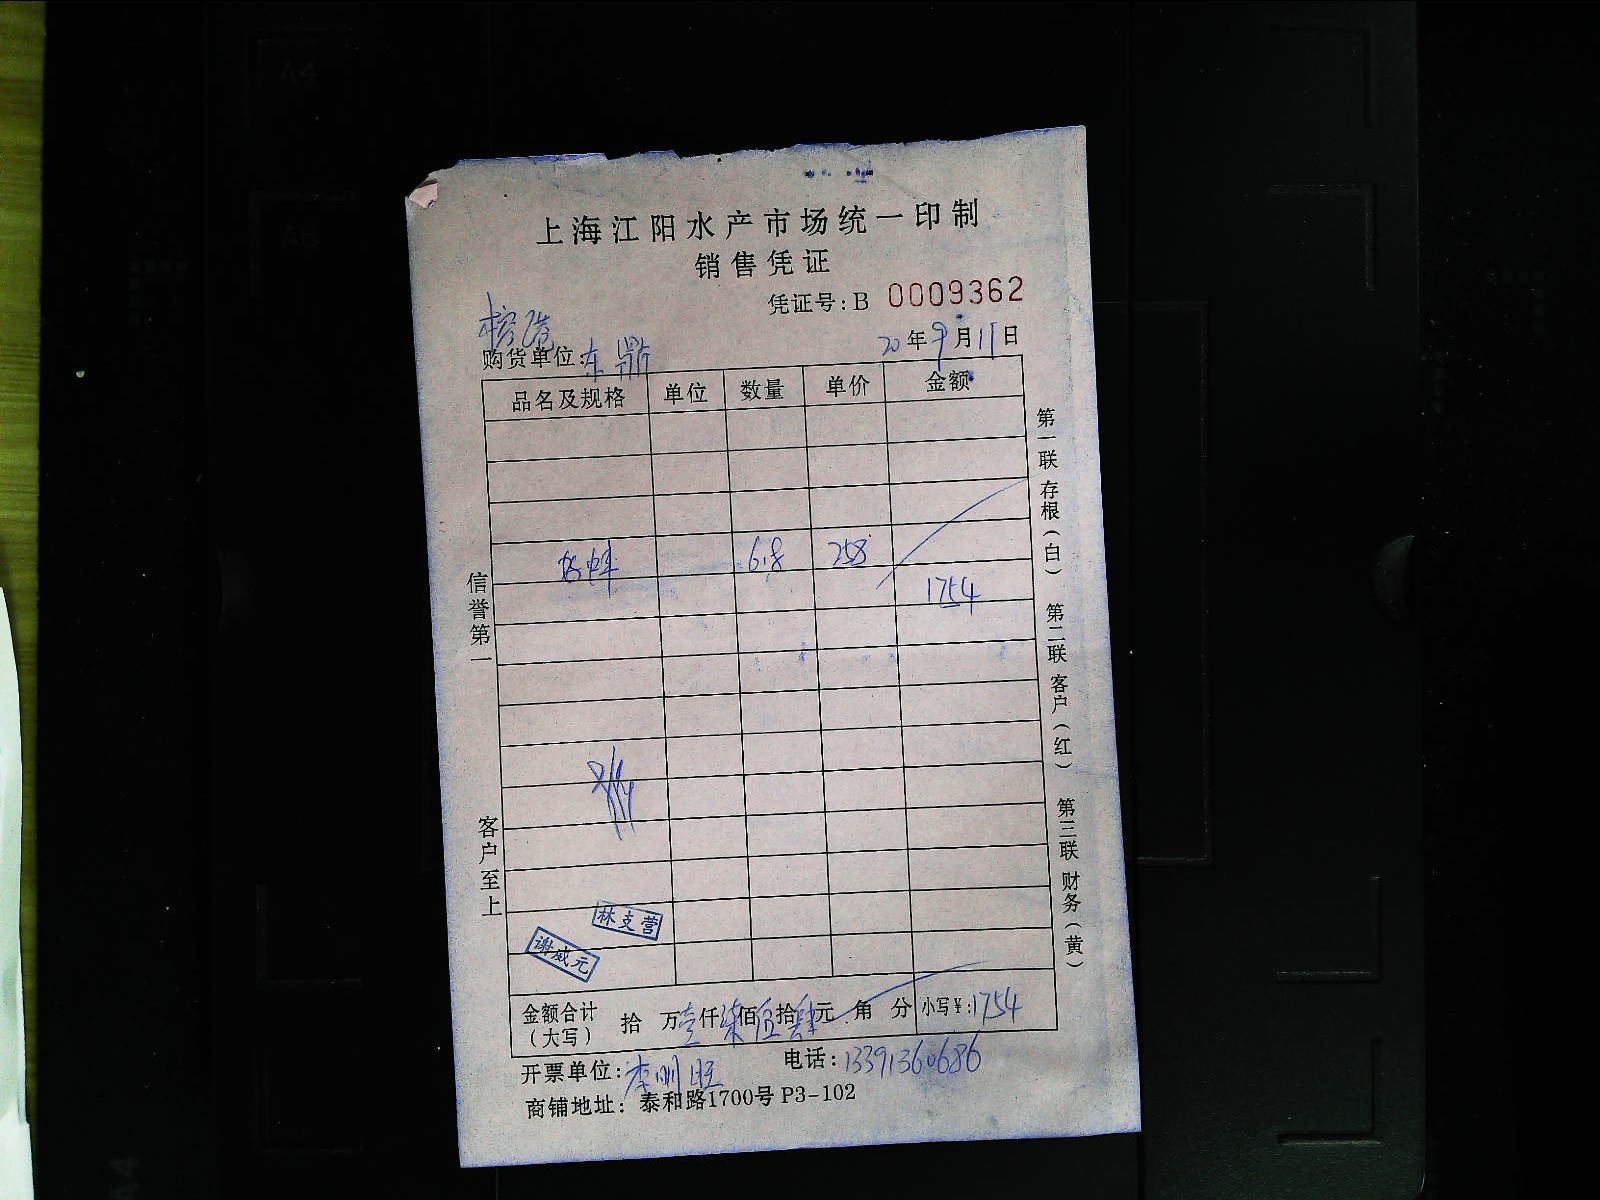 上海江阳水产市场统一印制
销售凭证
凭证号:B 0009362
榕港
购货单位:东鼎
20年9月11日
品名及规格 单位 数量 单价 金额
6.8 258
1754
林支营
谢威元
金额合计(大写) 拾 万壹仟柒佰伍拾肆元 角 分 小写¥:1754
开票单位:李明旺 电话:13391360686
商铺地址: 泰和路1700号 P3-102
信誉第一
客户至上
第一联 存根(白) 第二联 客户(红) 第三联 财务(黄)
A4
A5
A4